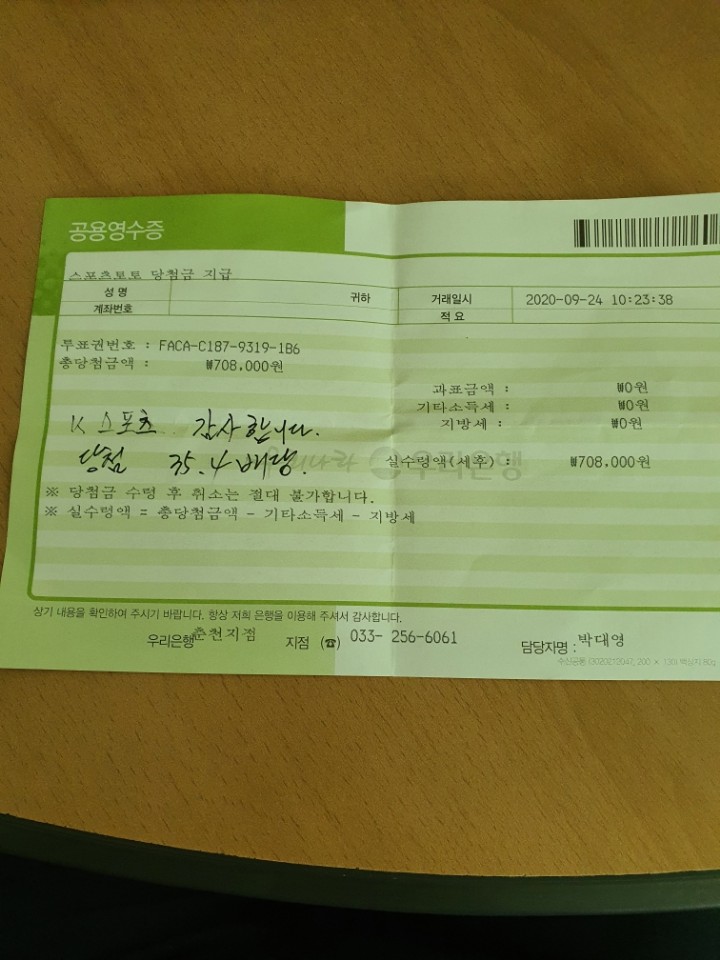 공용영수증
스포츠토토 당첨금 지급
성 명 귀하 거래일시 2020-09-24 10:23:38
계좌번호 적 요
투표권번호 : FACA-C187-9319-1B6
총당첨금액 : ₩708,000원
과표금액 : ₩0원
기타소득세 : ₩0원
지방세 : ₩0원
K 스포츠.. 감사합니다.
당첨 35.4 배당.
우리나라 우리은행
실수령액(세후) : ₩708,000원
※ 당첨금 수령 후 취소는 절대 불가합니다.
※ 실수령액 = 총당첨금액 - 기타소득세 - 지방세
상기 내용을 확인하여 주시기 바랍니다. 항상 저희 은행을 이용해 주셔서 감사합니다.
우리은행 춘천지점 지점 (☎) 033- 256-6061 담당자명 : 박대영